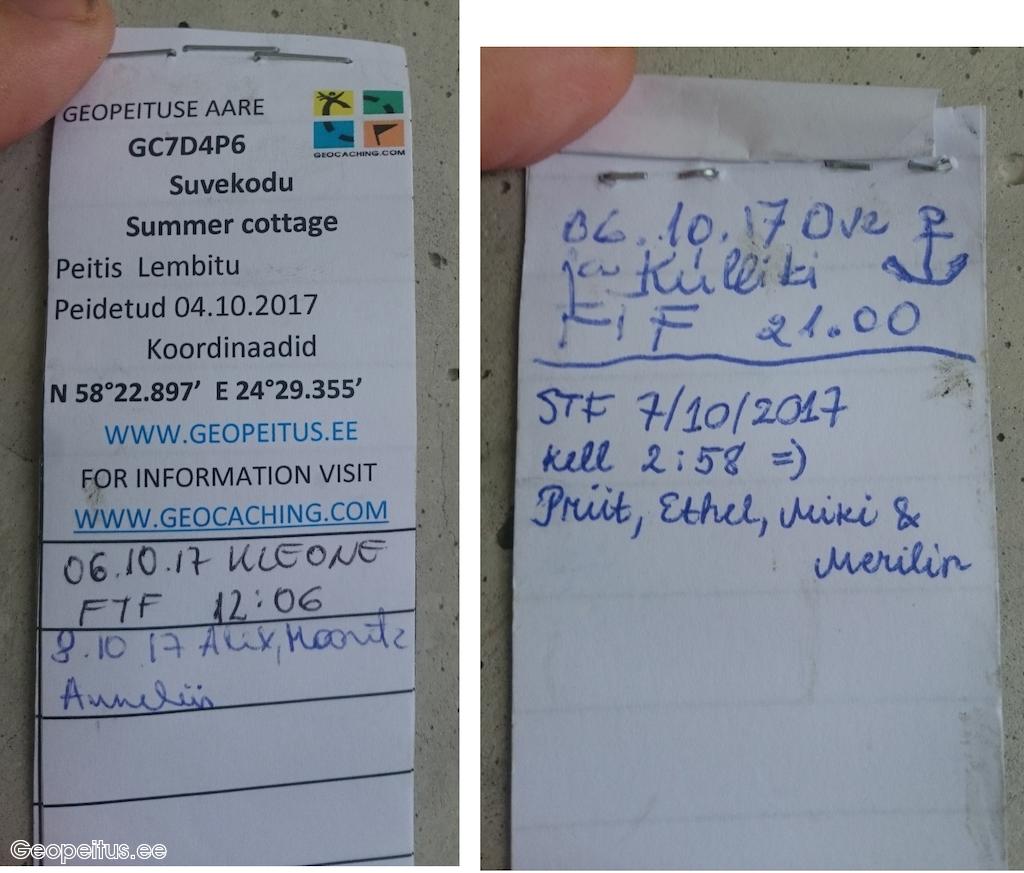 GEOPEITUSE AARE
GEOCACHING.COM
GC7D4P6
Suvekodu
Summer cottage
Peitis Lembitu
Peidetud 04.10.2017
Koordinaadid
N 58°22.897’ E 24°29.355’
WWW.GEOPEITUS.EE
FOR INFORMATION VISIT
WWW.GEOCACHING.COM
06.10.17 KLEONE
FTF 12:06
8.10 17 Alix,
Anneliis
Geopeitus.ee
06.10.17 Ove
ja Külliki
FTF 21.00
STF 7/10/2017
kell 2:58 =)
Priit, Ethel, Miki &
Merilin